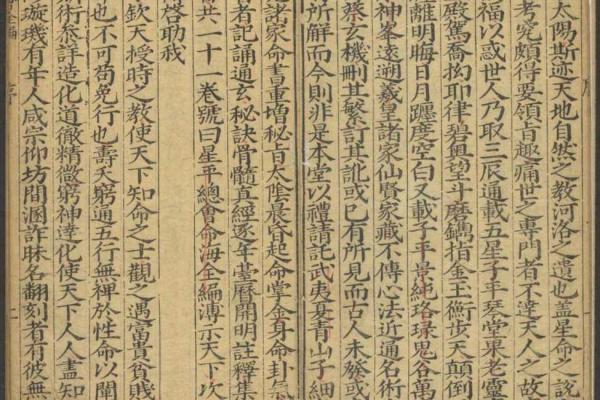 太陽斯迹天地自然之教河洛之遺也盖星命之說
考究頗得要領旨趣痛世之專門者不達天人之故
福以惑世人乃取三辰通載五星子平琴堂果老靈
殿駕喬拗耶律碧輿望斗磨鐫指金玉衡步天顛倒
經離明晦日月躔度空白又載子平景純珞琭鬼谷萬
神峯遠遡羲皇諸家仙賢家藏不傳心法近通名術
蔡玄機刪其繁訂其訛或已有所見而古人未發或
所解而今則非是本堂以禮請託武夷夏青山子細
諸家命書重增秘旨太陰晨昏起命掌金身命卦氣
者記誦通玄秘訣骨髓真經逐年臺曆開明註釋集
共一十一卷號曰星平總會命海全編溥示天下以
啓助我
欽天授時之教使天下知命之士觀之遇富貴貧賤
也不可苟免行也壽夭窮通五行無禆於性命以聞
術叅詳造化道徹精微窮神達化使天下人人盡知
璇璣有年人咸宗仰坊間溷詐昧名翻刻者有彼無
全編 序 二